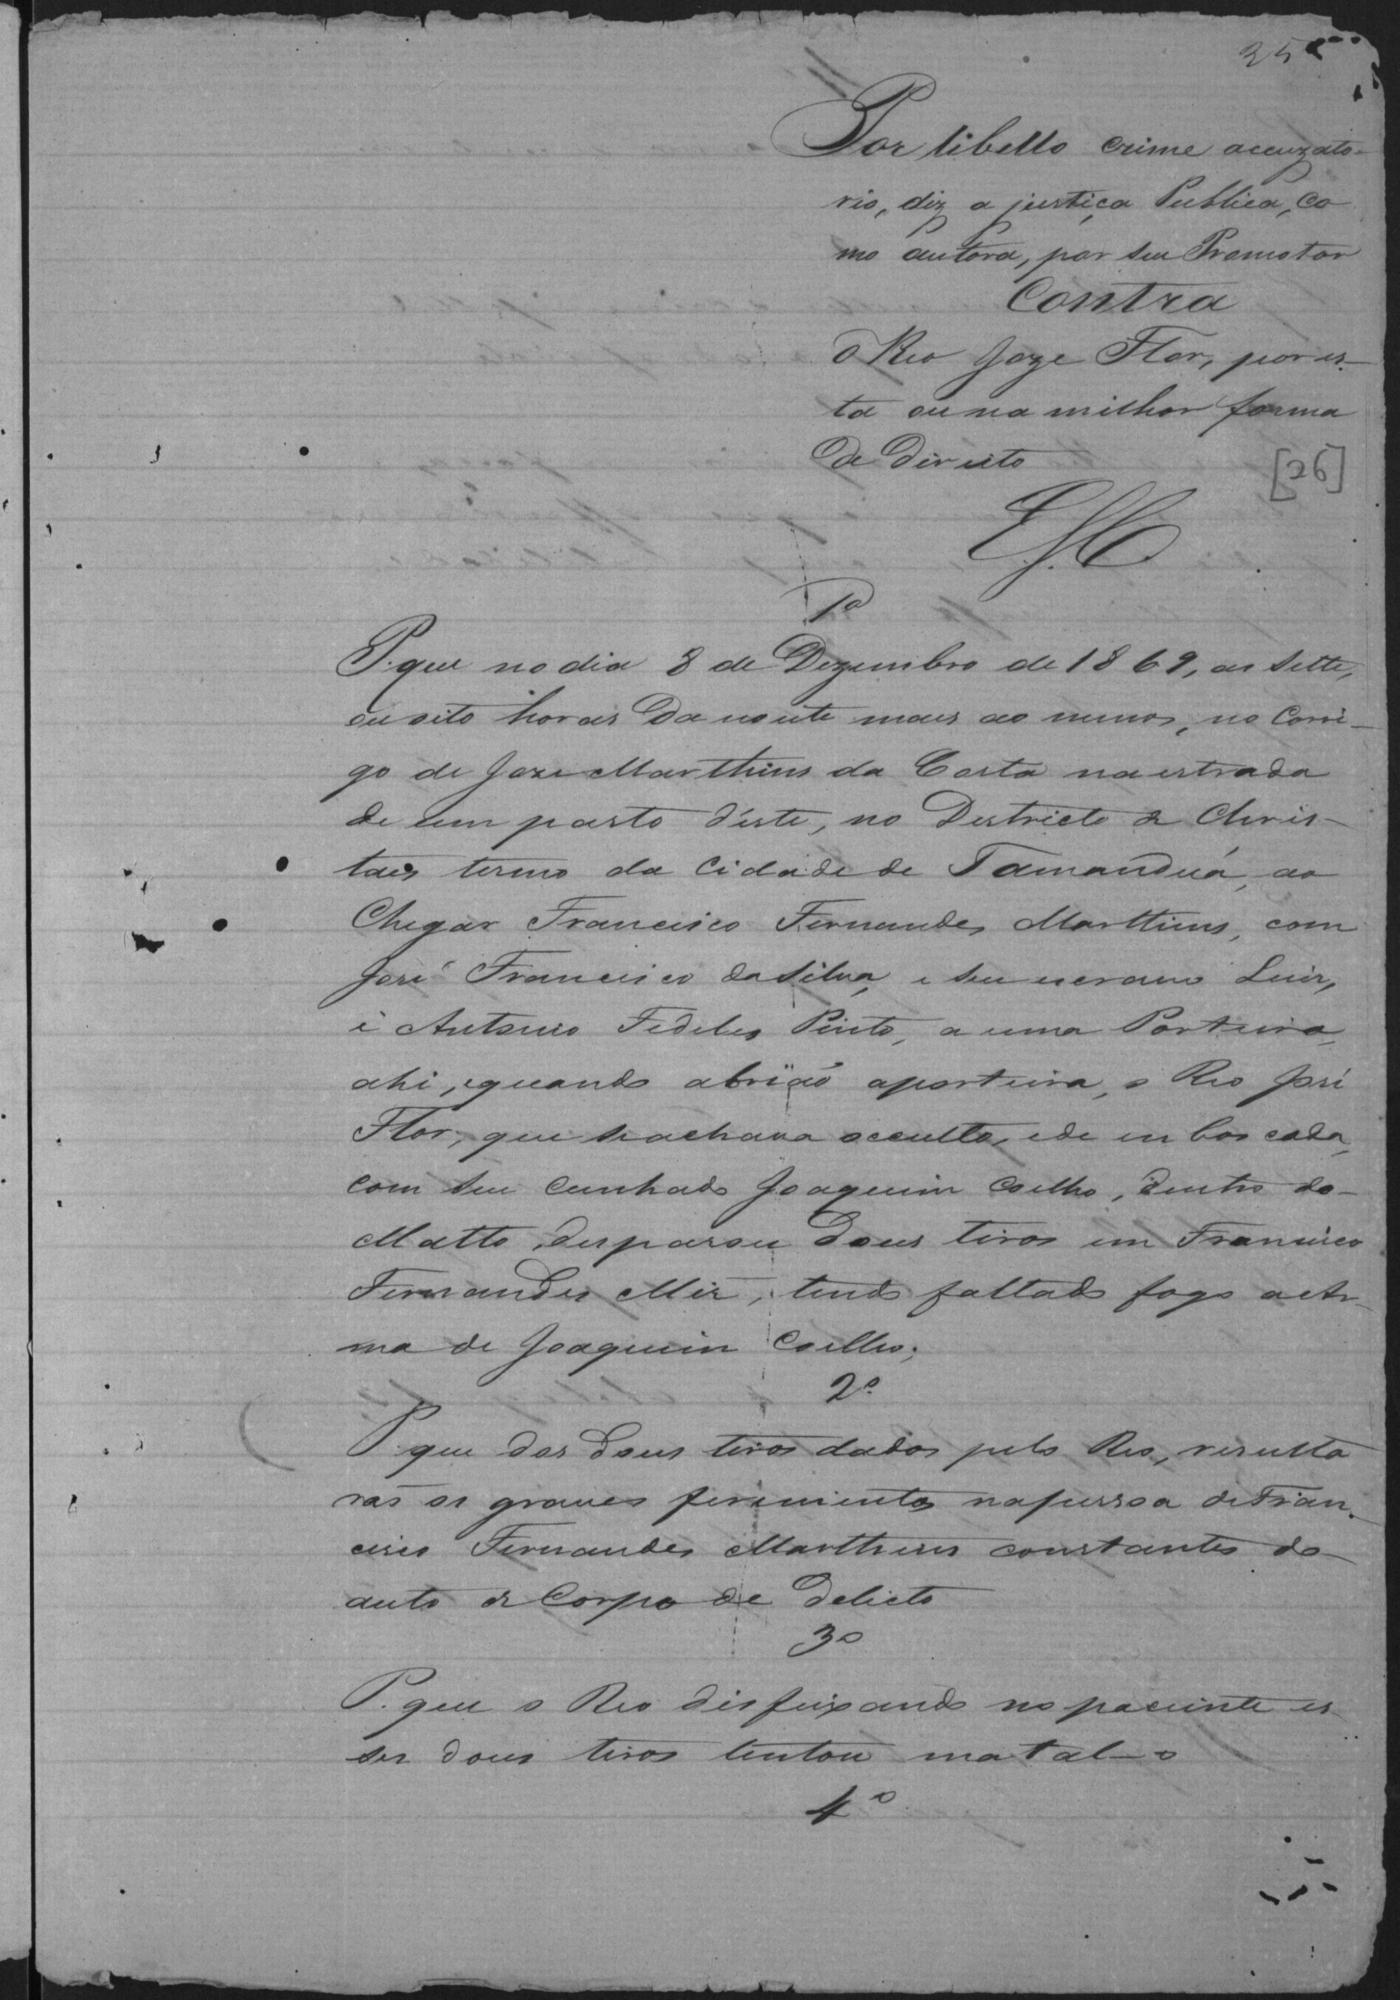 25
Por libello crime accuzato-
rio, diz a justiça Publica, co
mo autora, por seu Promotor
Contra
o Reo Joze Flor, por es-
ta ou na milhor forma
de direito
[26]
E.S.C.
1º
P. que no dia 8 de Dezembro de 1869, as sette,
ou oito horas da noute mais ao menos, no Corre-
go de Joze Marthins da Costa na estrada
de um pasto d'este, no Destricto de Chris-
taes termo da Cidade de Tamanduá, ao
Chegar Francisco Fernandes Marthins, com
José Francisco da Silva, e seu escravo Luis,
e Antonio Fideles Pinto, a uma Porteira,
ahi, quando abrião aporteira, o Reo José
Flor, que seachava occulto, ede en boscada,
com seu cunhado Joaquim Coelho, dentro do-
Matto, desparou dous tiros em Francisco
Fernandes Miz, tendo faltado fogo a Ar-
ma de Joaquim Coelho;
2º
P. que dos dous tiros dados pelo Reo, resulta
rão os graves ferimentos napessoa de Fran-
cisco Fernandes Marthins constantes do
auto de Corpo de Delicto
3º
P. que o Reo disfeixando no paciente es-
ses dous tiros tentou matal-o
4º